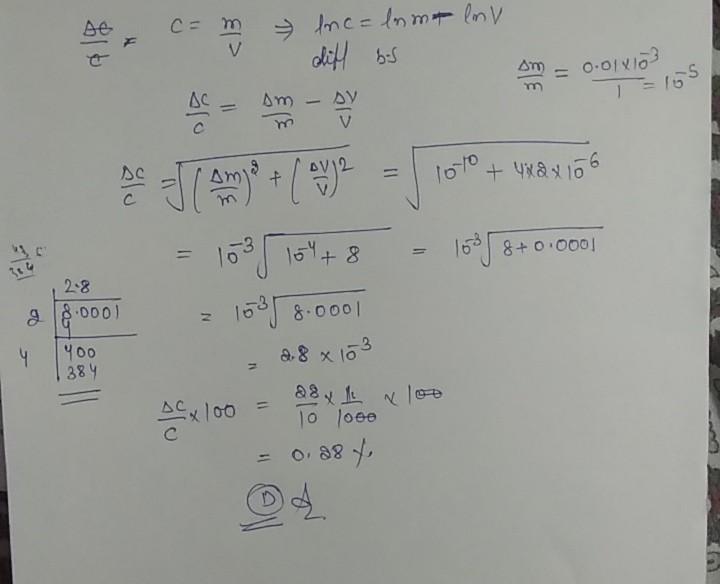 ΔC/C = C = m/V ⇒ ln c = ln m - ln V
diff b.s
Δm/m = 0.01×10⁻³/1 = 10⁻⁵
ΔC/C = Δm/m - ΔV/V
ΔC/C = √((Δm/m)² + (ΔV/V)²) = √(10⁻¹⁰ + 4×2×10⁻⁶)
= 10⁻³√(10⁻⁴ + 8) = 10⁻³√(8+0.0001)
2.8
2 8.0001
4
= 10⁻³√(8.0001)
4 400
384
= 2.8 × 10⁻³
ΔC/C × 100 = 28/10 × 1/1000 × 100
= 0.28 %
D